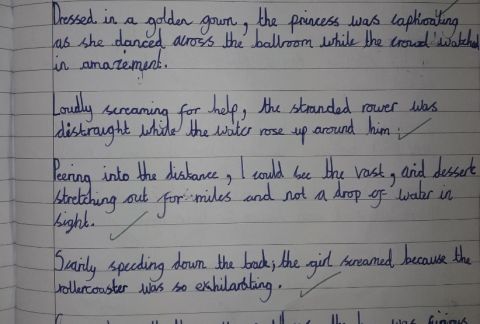 Dressed in a golden gown, the princess was captivating
as she danced across the ballroom while the crowd watched
in amazement.
Loudly screaming for help, the stranded rower was
distraught while the water rose up around him.
Peering into the distance, I could see the vast, arid dessert
stretching out for miles and not a drop of water in
sight.
Scarily speeding down the track, the girl screamed because the
rollercoaster was so exhilarating.